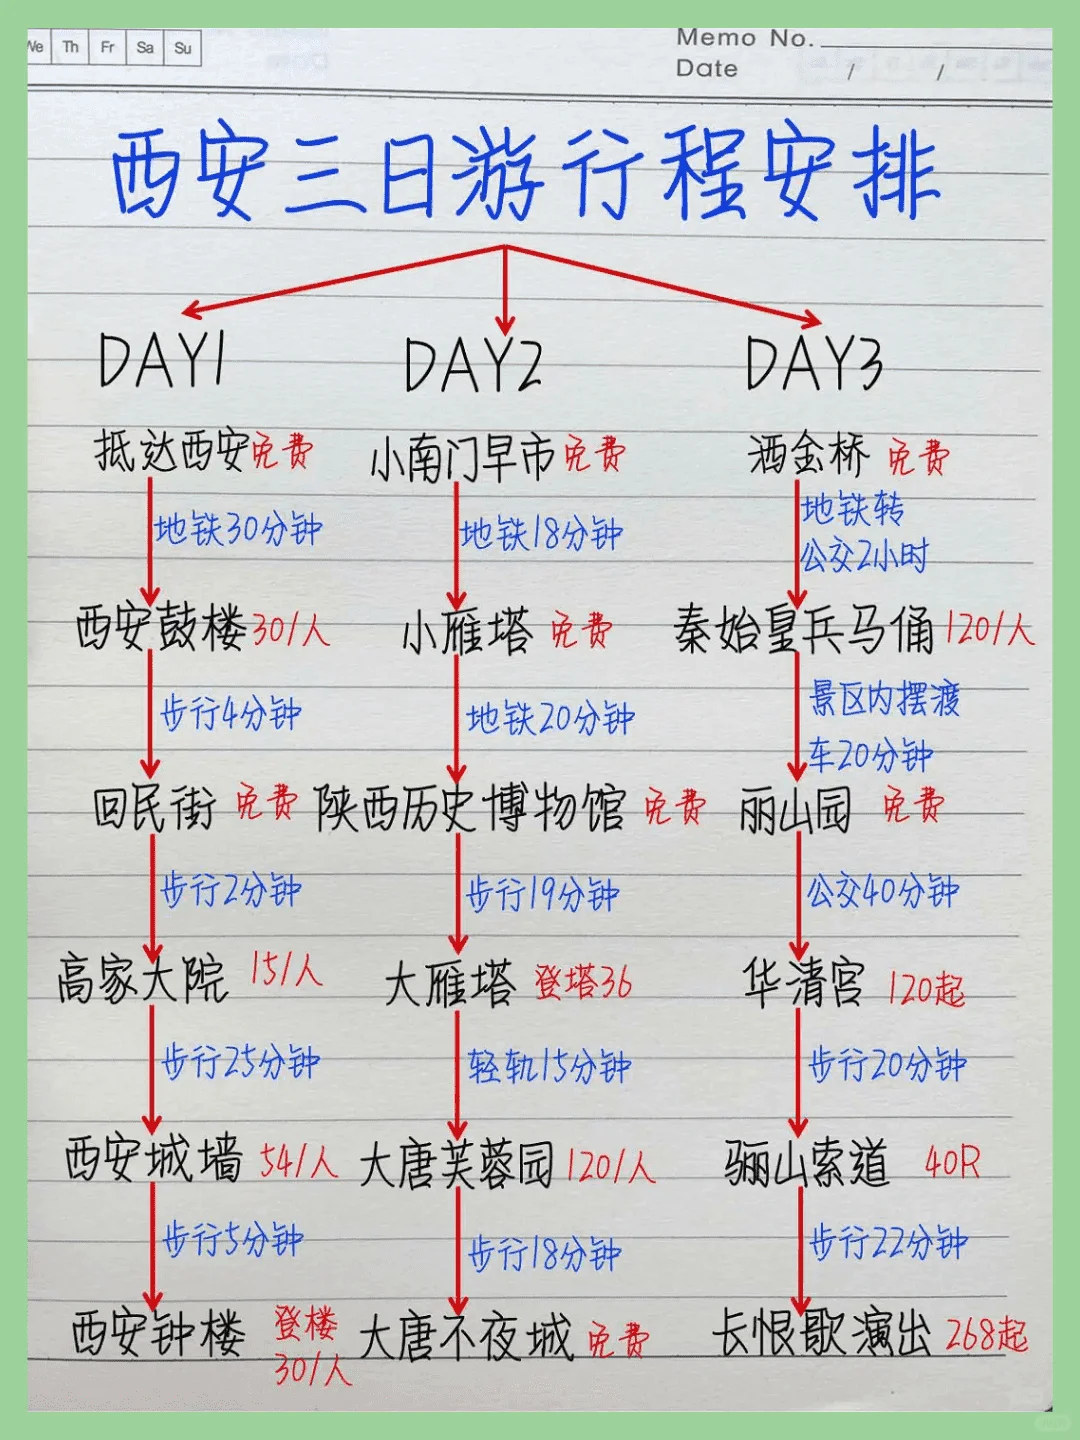 We Th Fr Sa Su
Memo No.
Date / /
西安三日游行程安排
DAY1
抵达西安免费
地铁30分钟
西安鼓楼30/人
步行4分钟
回民街 免费
步行2分钟
高家大院 15/人
步行25分钟
西安城墙 54/人
步行5分钟
西安钟楼 登楼
30/人
DAY2
小南门早市免费
地铁18分钟
小雁塔 免费
地铁20分钟
陕西历史博物馆 免费
步行19分钟
大雁塔 登塔36
轻轨15分钟
大唐芙蓉园120/人
步行18分钟
大唐不夜城 免费
DAY3
洒金桥 免费
地铁转
公交2小时
秦始皇兵马俑120/人
景区内摆渡
车20分钟
丽山园 免费
公交40分钟
华清宫 120起
步行20分钟
骊山索道 40R
步行22分钟
长恨歌演出268起